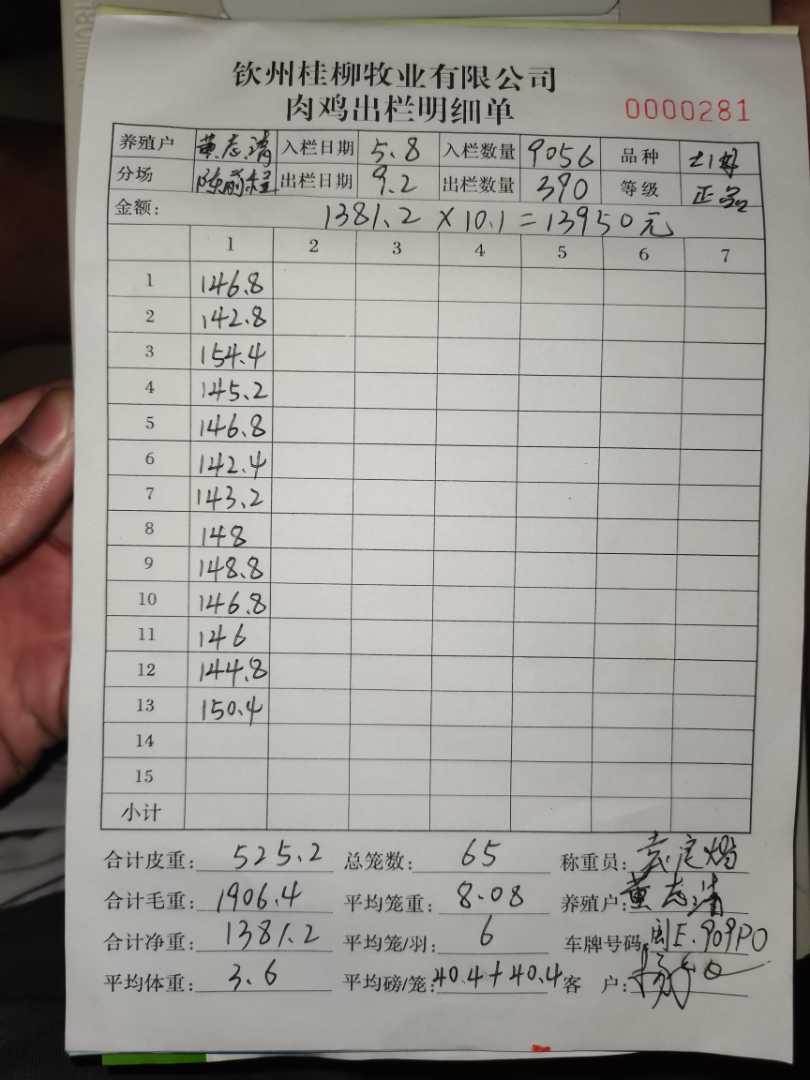 钦州桂柳牧业有限公司
肉鸡出栏明细单 0000281
养殖户 黄志清 入栏日期 5.8 入栏数量 9056 品种
分场 陈前程 出栏日期 9.2 出栏数量 390 等级 正品
金额: 1381.2 × 10.1 = 13950元
1 2 3 4 5 6 7
1 146.8
2 142.8
3 154.4
4 145.2
5 146.8
6 142.4
7 143.2
8 148
9 148.8
10 146.8
11 146
12 144.8
13 150.4
14
15
小计
合计皮重: 525.2 总笼数: 65 称重员:
合计毛重: 1906.4 平均笼重: 8.08 养殖户: 黄志清
合计净重: 1381.2 平均笼/羽: 6 车牌号码: 闽E.909P0
平均体重: 3.6 平均磅/笼: 40.4+40.4 客 户: